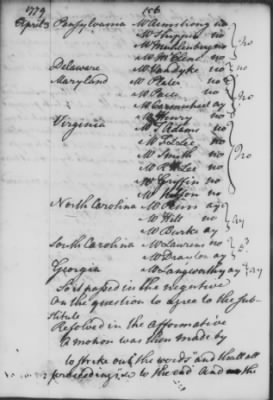 1779
April 3
Pensylvania Mr Armstrong no
Mr Shippen no
Mr Muhlenberg no
Mr McClene no
no
Delaware Mr Vandyke no
Maryland Mr Plater no
Mr Paca no
Mr Carmichael ay
Mr Henry no
no
Virginia Mr T Adams no
Mr F L Lee no
Mr Smith no
Mr R H Lee no
Mr Griffin no
Mr Nelson no
no
North Carolina Mr Penn ay
Mr Hill no
Mr Burke ay
ay
South Carolina Mr Laurens no
Mr Drayton ay
Georgia Mr Langworthy ay
ay
So it passed in the negative
On the question to agree to the sub-
stitute
Resolved in the affirmative
A motion was then made by
to strike out the words and that all
preceding to the end And the